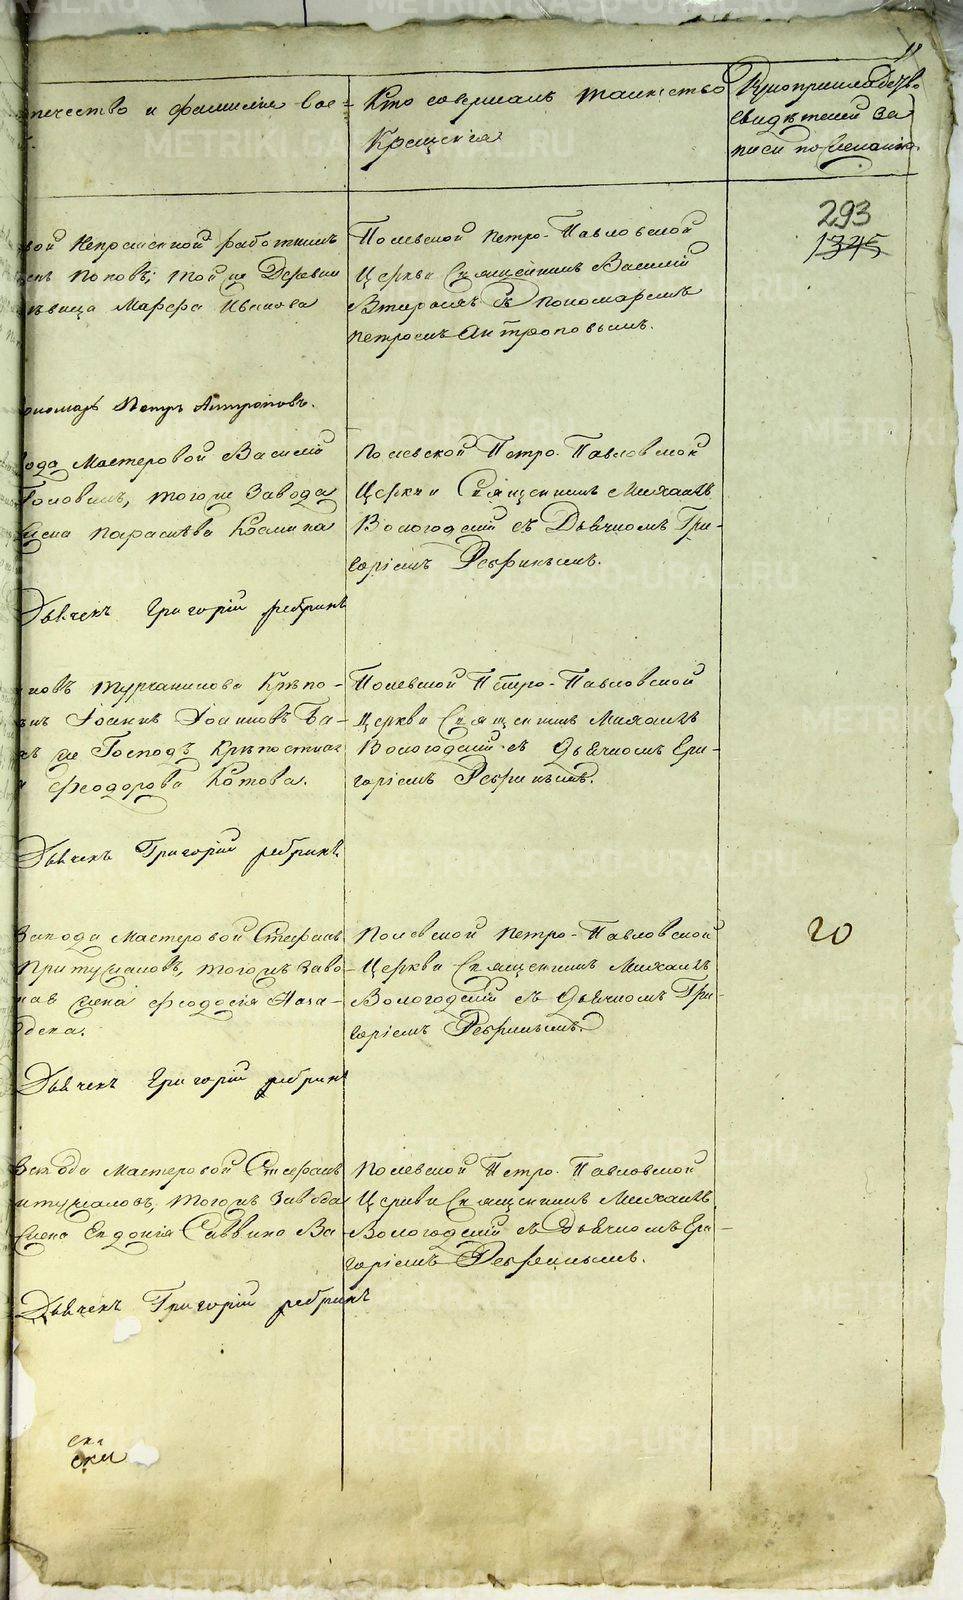 11
отчество и фамилия вос=
Кто совершалъ таинство
Крещенія
Рукоприкладство
свидѣтелей за
писи по желанію.
293
1345
вой Непремѣнной работникъ
Поповъ; той же Деревни
дѣвица Марфа Иванова
Полевской Петро-Павловской
Церкви Священникъ Василій
Втораевъ съ пономаремъ
Петромъ Антроповымъ.
пономарь Петръ Антроповъ.
вода Мастеровой Василій
Головинъ, того же Завода
жена Параскева Козмина
Полевской Петро-Павловской
Церкви Священникъ Михаилъ
Вологодскій съ Дьячкомъ Гри-
горіемъ Ребринымъ.
Дьячекъ Григорій Ребринъ
новъ Турчанинова Крѣпо-
Іоаннъ Іоанновъ Ба-
же Господъ Крѣпостная
Феодорова Котова.
Полевской Петро-Павловской
Церкви Священникъ Михаилъ
Вологодскій съ Дьячкомъ Гри-
горіемъ Ребринымъ.
Дьячекъ Григорій Ребринъ
Завода Мастеровой Стефанъ
Притужаловъ, тогожъ Заво-
жена Феодосія Наза-
Полевской Петро-Павловской
Церкви Священникъ Михаилъ
Вологодскій съ Дьячкомъ Гри-
горіемъ Ребринымъ.
20
Дьячекъ Григорій Ребринъ
Завода Мастеровой Стефанъ
итужаловъ, тогожъ Завода
жена Евдокія Саввина Ва-
Полевской Петро-Павловской
Церкви Священникъ Михаилъ
Вологодскій съ Дьячкомъ Гри-
горіемъ Ребринымъ.
Дьячекъ Григорій Ребринъ
METRIKI.GASO-URAL.RU